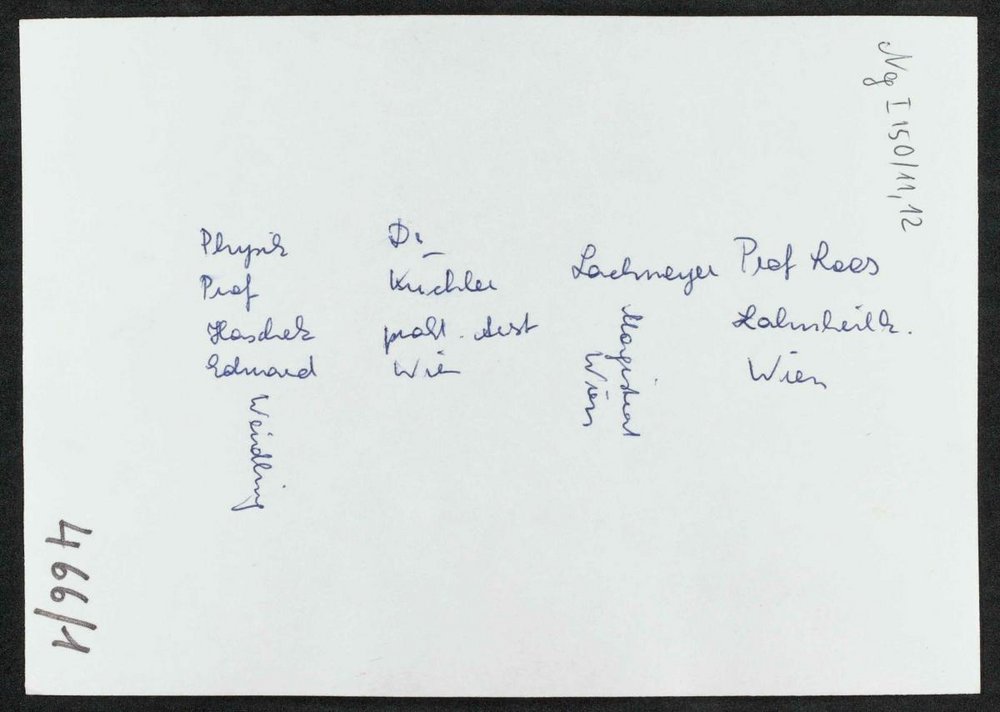 Neg I 150/11, 12
Physik
Prof
Haschek
Eduard
Weidling
Dr
Küchler
prakt. Arzt
Wien
Lachmayer
Magistrat
Wien
Prof Loos
Zahnheilk.
Wien
466/1